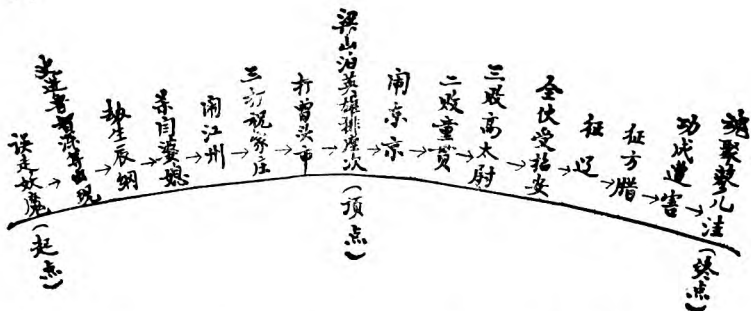 误走妖魔
→
史进鲁智深等出现
→
劫生辰纲
→
杀闫婆媳
→
闹江州
→
三打祝家庄
→
打曾头市
→
梁山泊英雄排座次
→
闹东京
→
二败童贯
→
三败高太尉
→
全伙受招安
→
征辽
→
征方腊
→
功成遭害
→
魂聚蓼儿洼
(起点)
(顶点)
(终点)